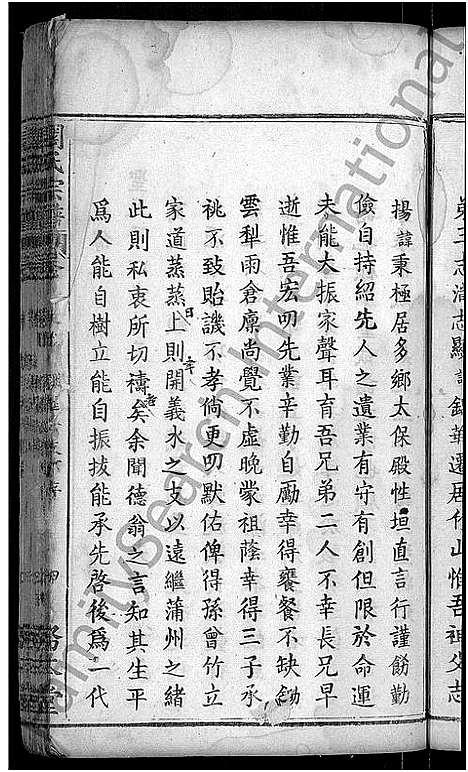 第三志清志顯諱錦華遷居作山惟吾祖父志
揚諱秉極居多鄉太保殿性坦直言行謹飭勤
儉自持紹先人之遺業有守有創但限於命運
未能大振家聲耳育吾兄弟二人不幸長兄早
逝惟吾宏叨先業辛勤自勵幸得饔餐不缺鋤
雲犁雨倉廩尚覺不虛晚蒙祖蔭幸得三子承
祧不致貽譏不孝倘更叨默佑俾得孫曾竹立
家道蒸蒸日上則幸開義水之支以遠繼蒲州之緒
此則私衷所切禱者矣余聞德翁之言知其生平
爲人能自樹立能自振拔能承先啓後爲一代
周氏宗譜
堂
familysearch international